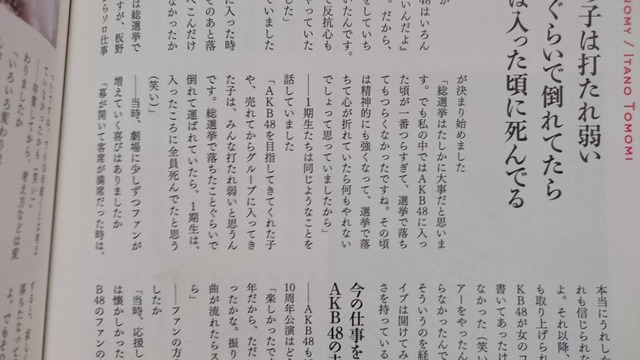 NOMY / ITANO TOMOMI
子は打たれ弱い
ぐらいで倒れてたら
は入った頃に死んでる
48はいろん
いんだよ』
。だから、
をしていち
いたんです。
て反抗心も
やっていた
した」
していました
に入った時
そのあと落
、こんだけ
なかったか
は総選挙で
すが、板野
らソロ仕事
が決まり始めました
「総選挙はたしかに大事だと思いま
す。でも私の中ではAKB48に入っ
た頃が一番つらすぎて、選挙で落ち
てもつらくなかったですね。その頃
は精神的にも強くなって、選挙で落
ちて心が折れていたら何もやれない
でしょって思っていましたから」
――1期生たちは同じようなことを
話していました
「AKB48を目指してきてくれた子
や、売れてからグループに入ってき
た子は、みんな打たれ弱いと思うん
です。総選挙で落ちたことぐらいで
倒れて運ばれていたら、1期生は、
入ったころに全員死んでたと思う
(笑い)」
――当時、劇場に少しずつファンが
増えていく喜びはありましたか
「幕が開いて客席が満席だった時は、
本当にうれし
れも信じられた
よ。それ以降、
も取り上げら
KB48が女のコ
書いてあったけ
なかった(笑い
アーをやったん
らなかったんで
そういうのを経
イブは開けてみ
さを持っている
今の仕事を
AKB48の
――AKBも
10周年公演はど
「楽しかったで
年だから、ただ
ったかな。振り
曲が流れたらス
――ファンの方
ら」
「当時、応援し
は懐かしかった
B48のファンの
したか